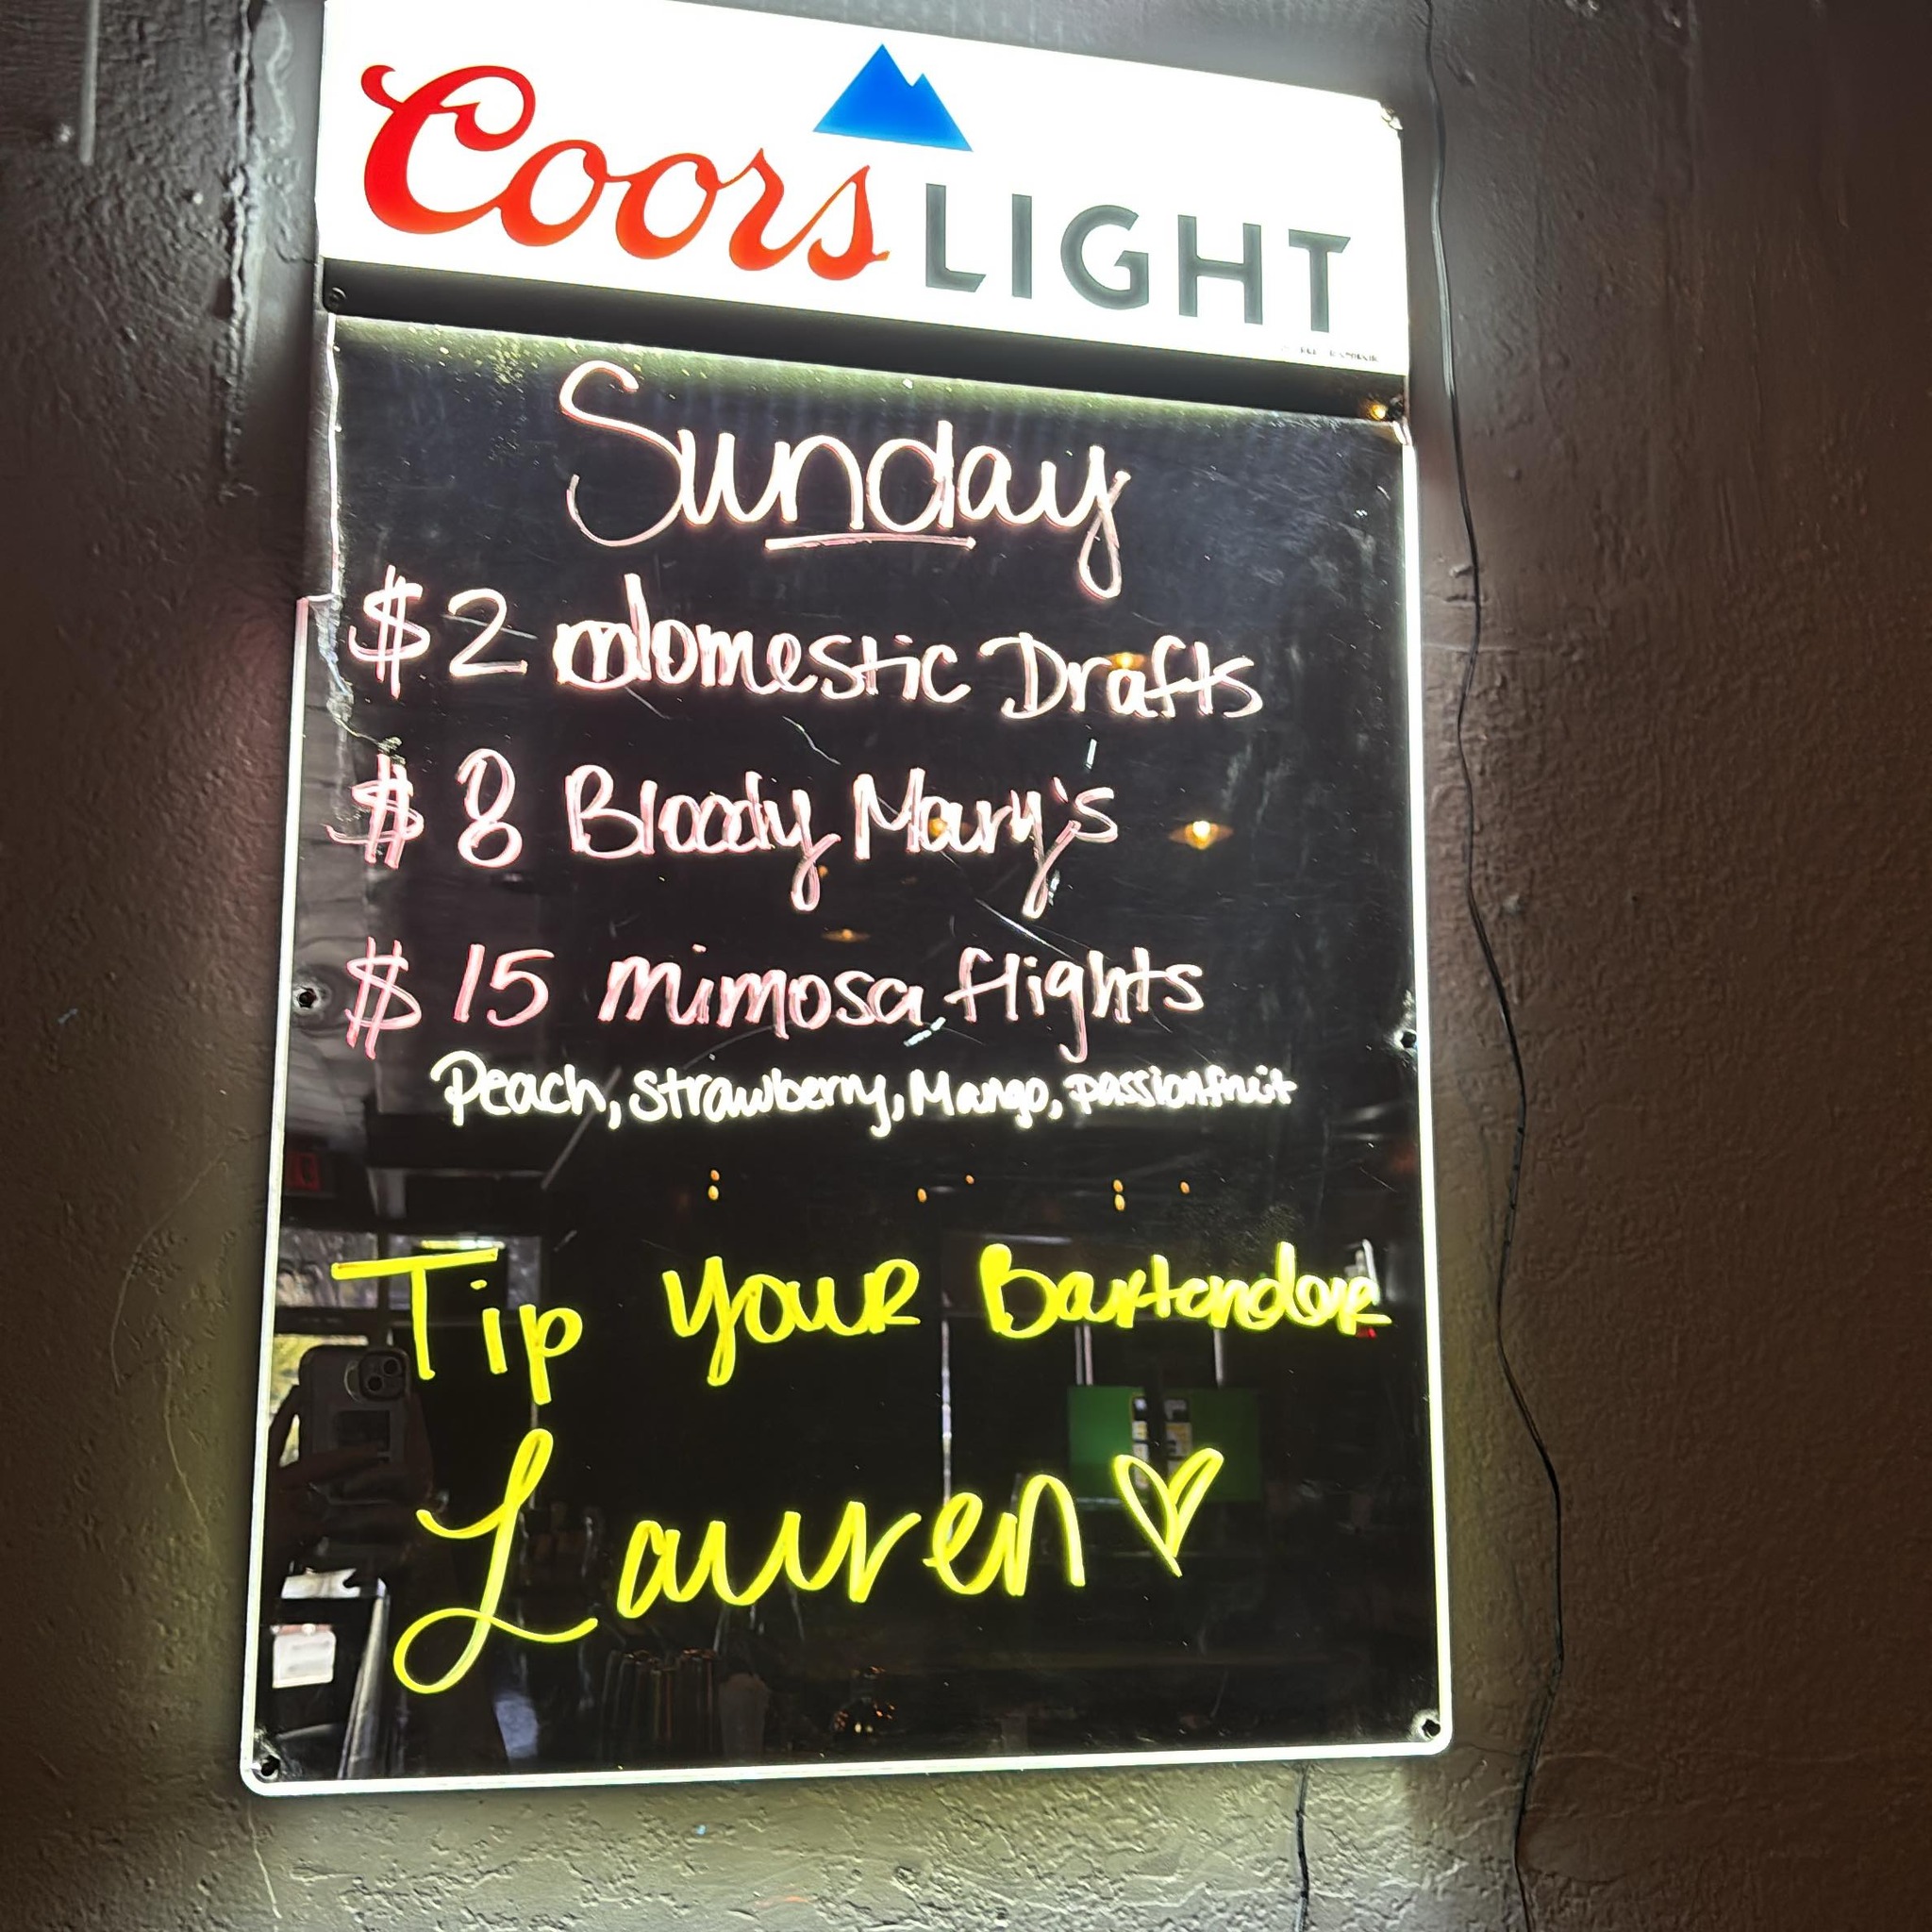 Coors LIGHT
Sunday
$2 domestic Drafts
$8 Bloody Mary's
$15 mimosa flights
Peach, Strawberry, Mango, passionfruit
Tip youR BartendeR
Lauren